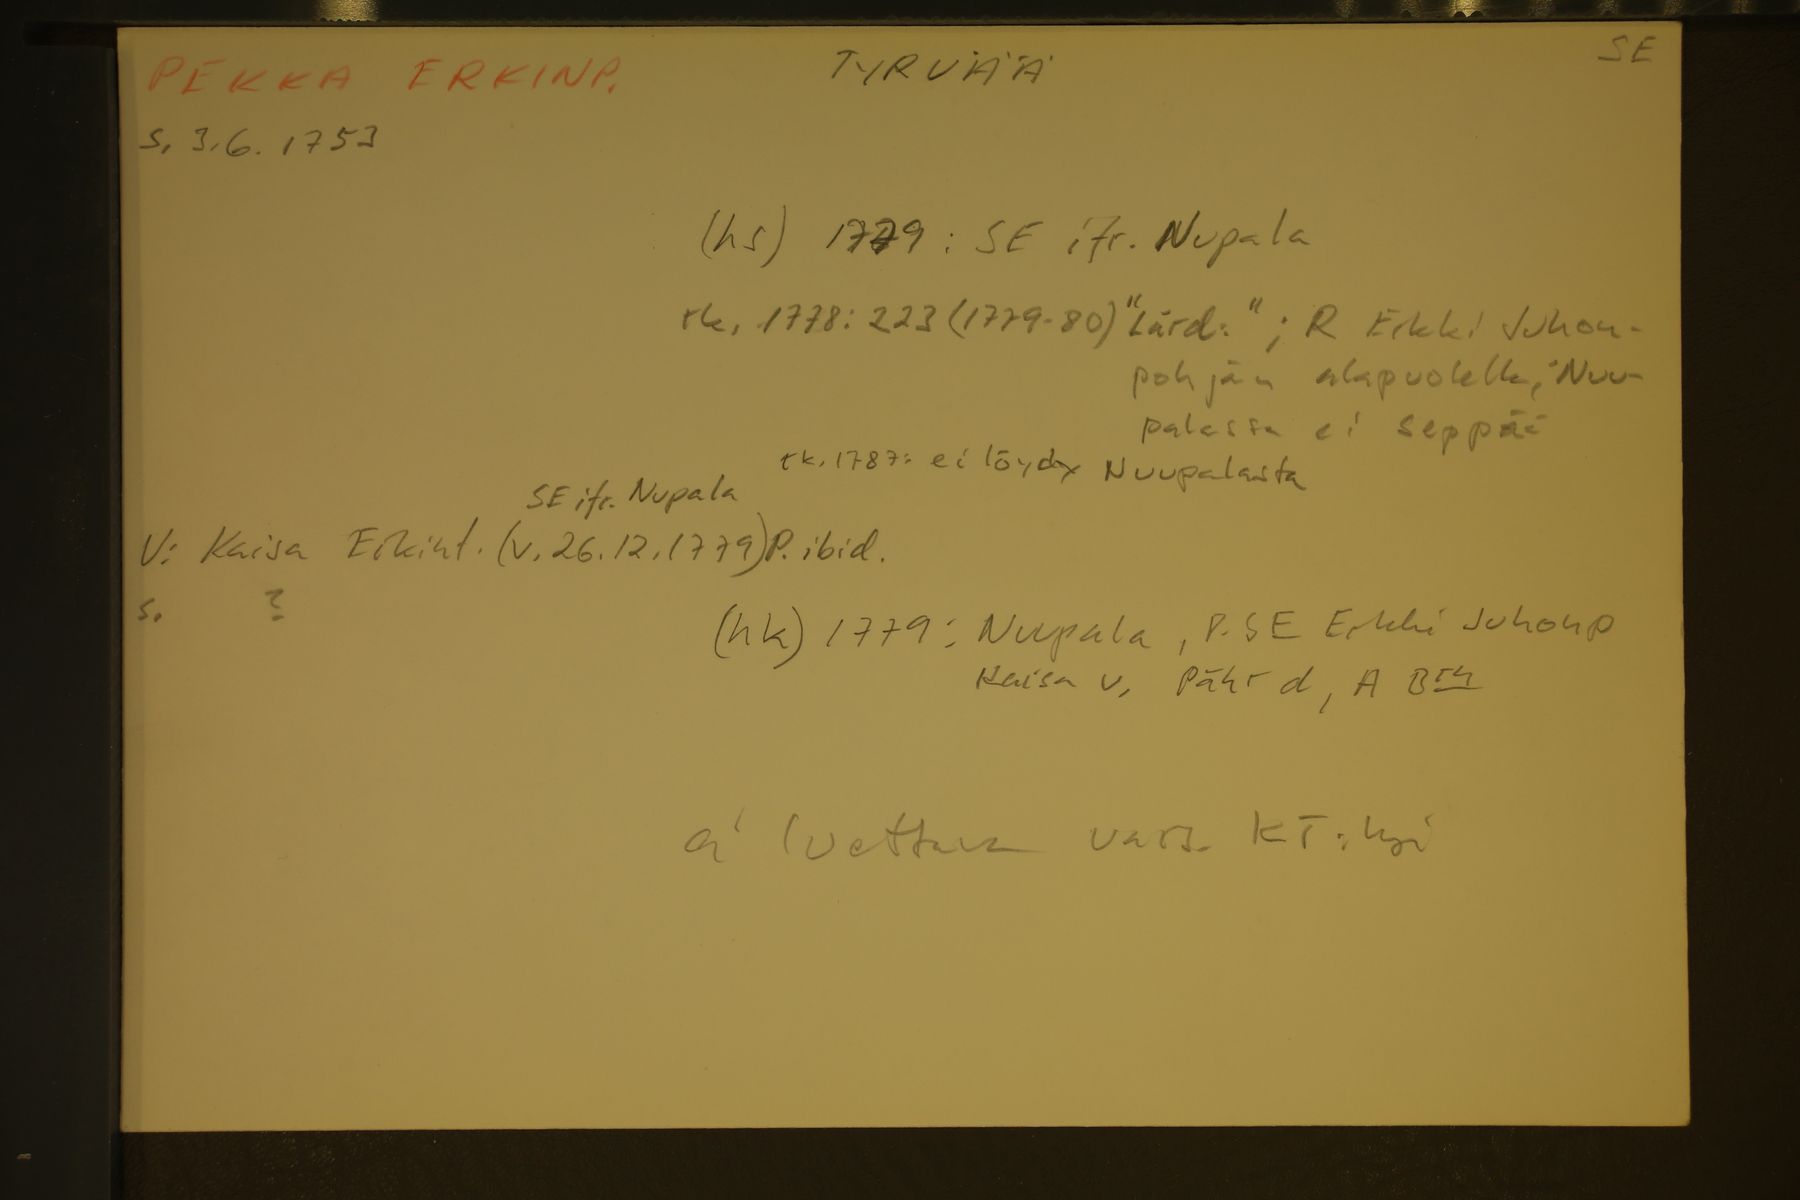 PEKKA ERKINP. TYRVÄÄ SE
s. 3.6. 1753
(hs) 1779 : SE ifr. Nupala
rk. 1778: 223 (1779-80) "Lärd:" ; R Erkki Juhon-
pohjän alapuolella, Nuu-
palassa ei seppää
rk. 1787: ei löydy Nuupalasta
SE ifr. Nupala
V: Kaisa Erkint. (v. 26.12.1779) P. ibid.
s. ?
(hk) 1779 : Nupala , P. SE Erkki Juhonp
Kaisa v, d, A
ei luettu KT: